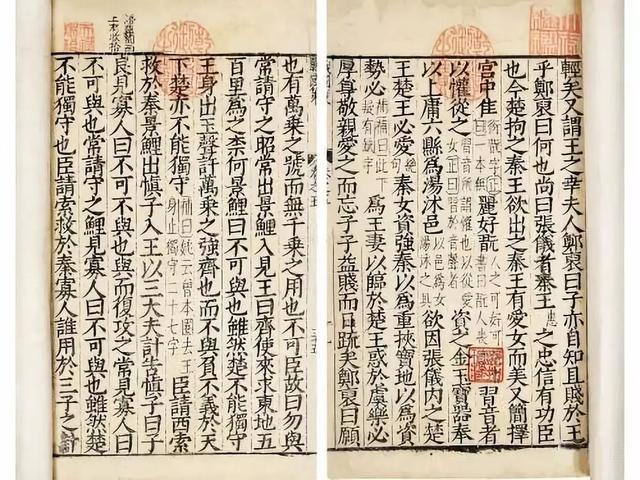 輕矣又謂王之幸夫人鄭裒曰子亦自知且賤於王
乎鄭裒曰何也尚曰張儀者秦王惠之忠信有功臣
也今楚拘之秦王欲出之秦王有愛女而美又簡擇
宮中佳一本無麗好翫習音者
以懽從之資之金玉寶器奉
以上庸六縣為湯沐邑欲因張儀內之楚
王楚王必愛秦女資強秦以為重挾寶地以為資
勢必為王妻以臨於楚王惑於虞樂必
厚尊敬親愛之而忘子子益賤而日疏矣鄭裒曰願
也有萬乘之號而無千乘之用也不可臣故曰勿與
常請守之昭常出景鯉入見王曰齊使來求東地五
百里為之柰何景鯉曰不可與也雖然楚不能獨守
王身出玉聲許萬乘之強齊也而不與負不義於天
下楚亦不能獨守姚云曾本圈去王身止獨守二十七字臣請西索
救於秦景鯉出慎子入王以三大夫計告慎子曰子
良見寡人曰不可不與也與而復攻之常見寡人曰
不可與也常請守之鯉見寡人曰不可與也雖然楚
不能獨守也臣請索救於秦寡人誰用於三子之計